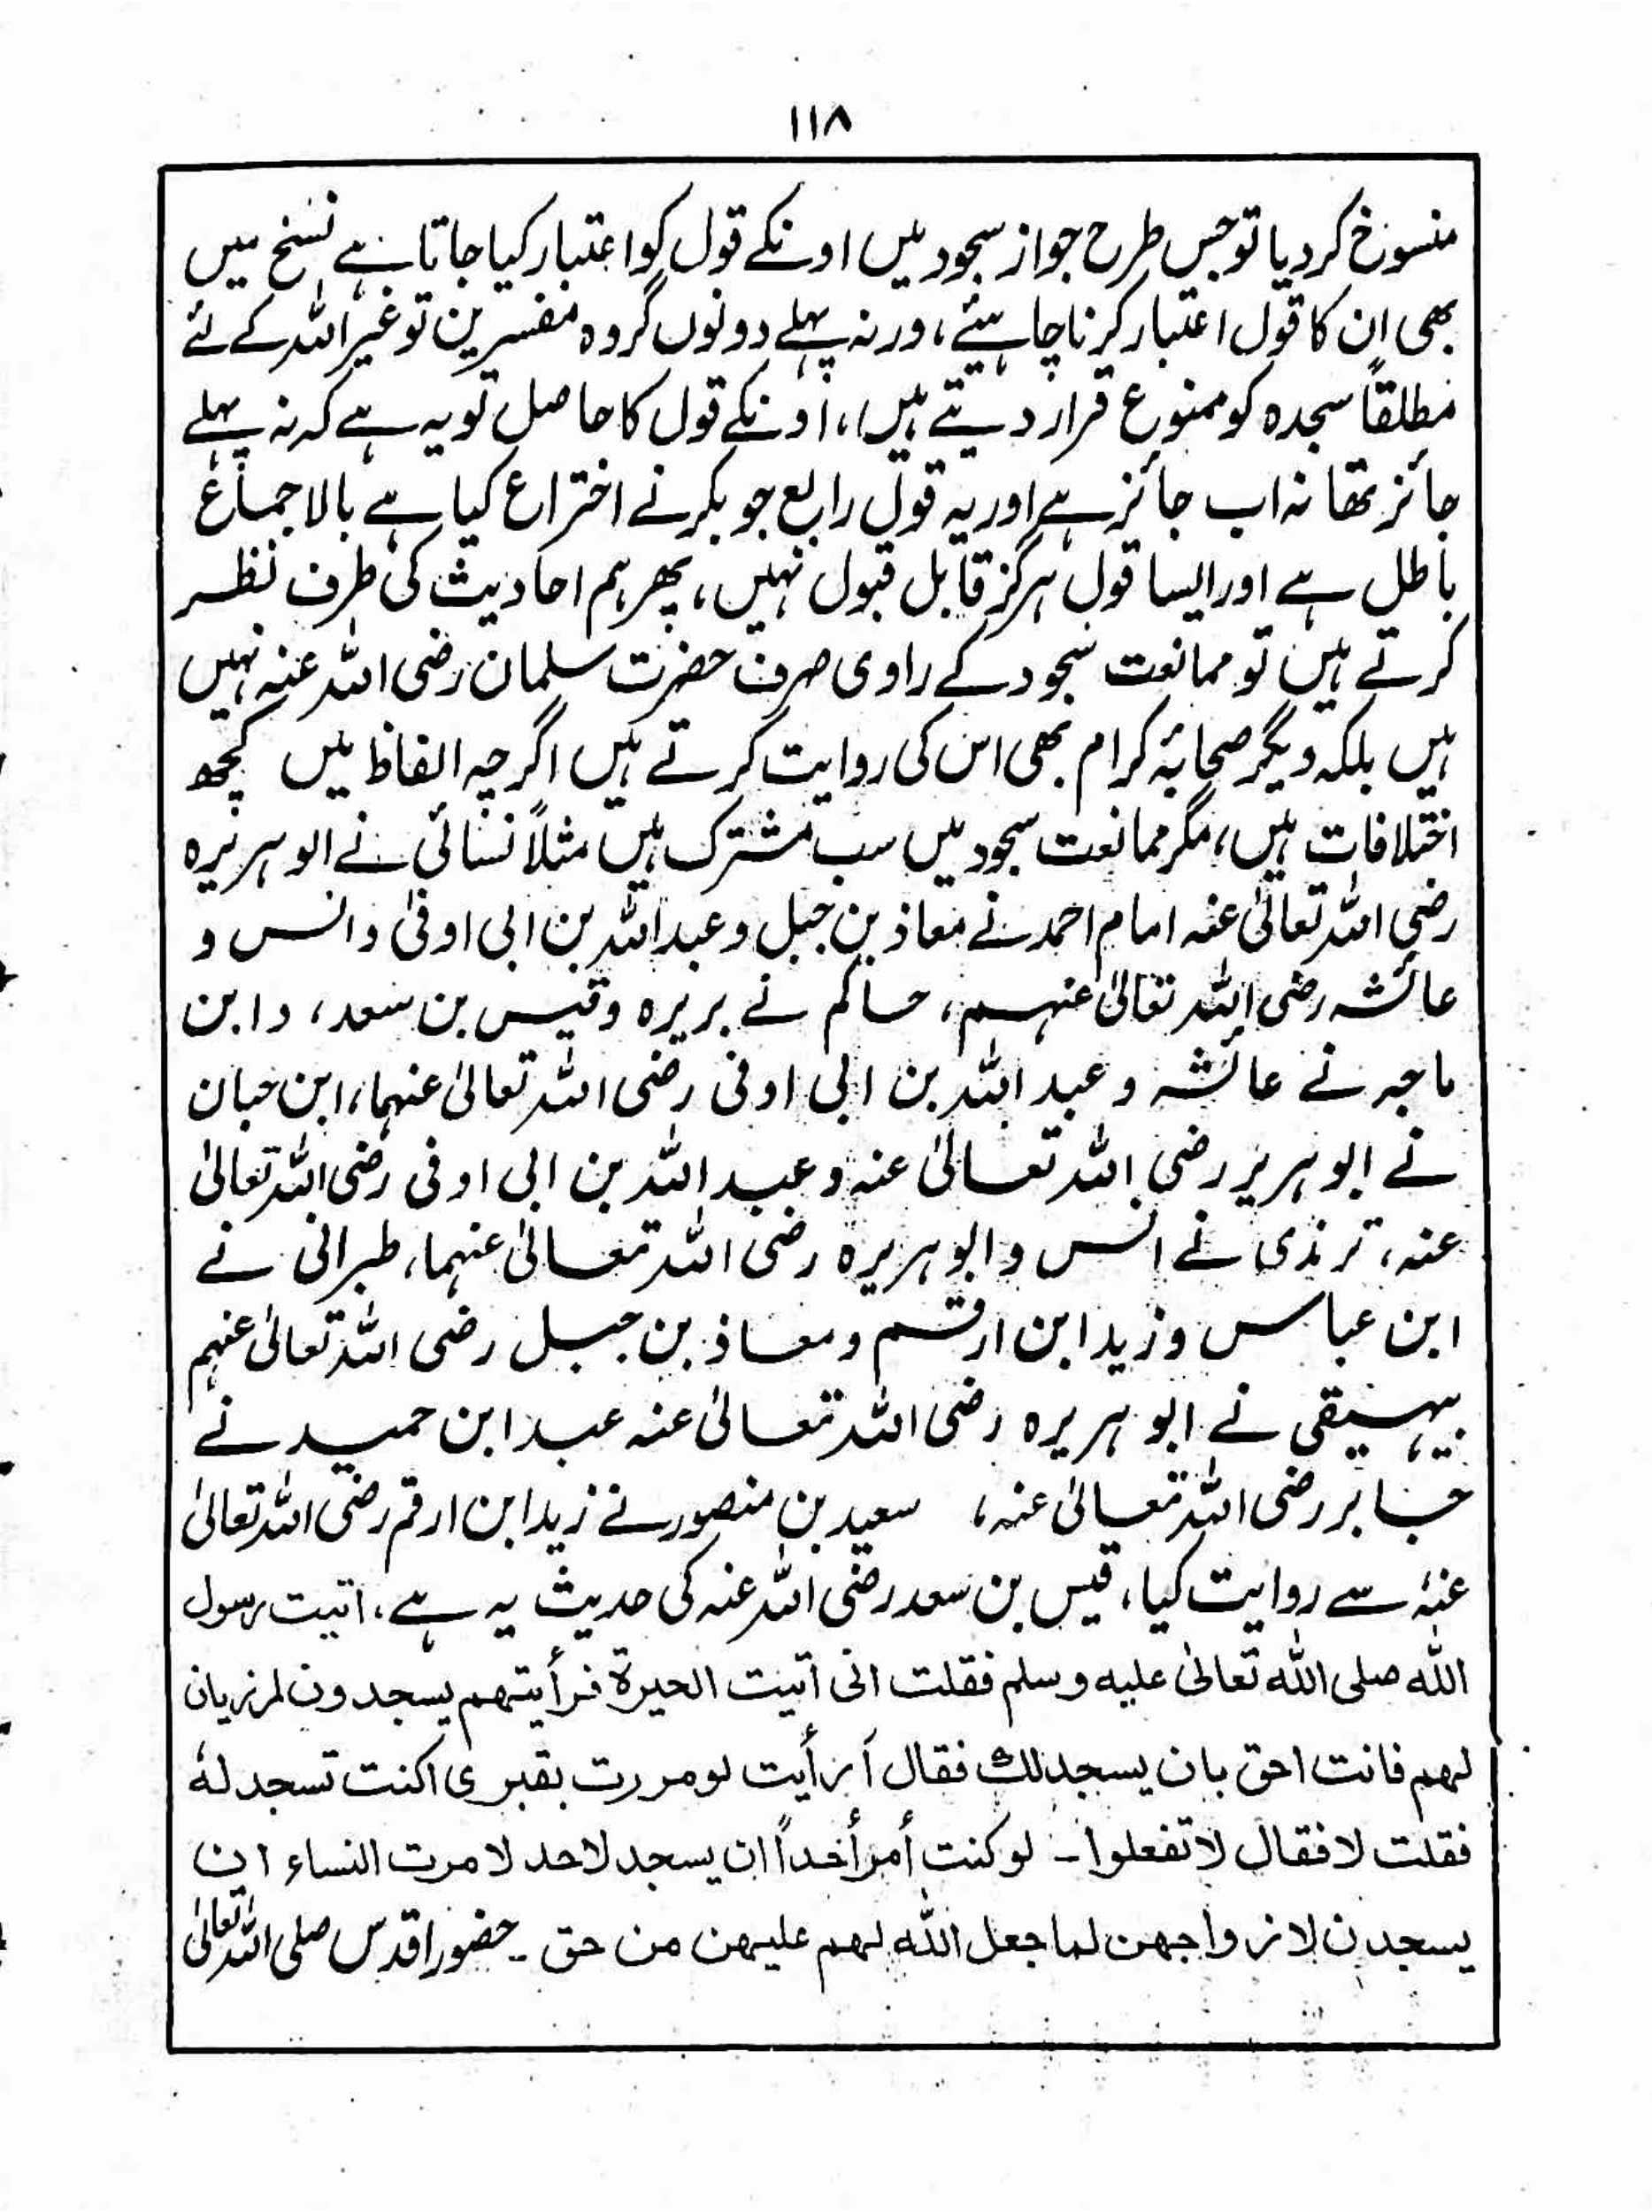 ۱۱۸
منسوخ کردیا تو جس طرح جواز سجود میں اونکے قول کو اعتبار کیا جاتا ہے نسخ میں
بھی ان کا قول اعتبار کرنا چاہیئے، ورنہ پہلے دونوں گروہ مفسرین تو غیر اللہ کے لئے
مطلقاً سجدہ کو ممنوع قرار دیتے ہیں، اونکے قول کا حاصل تو یہ ہے کہ نہ پہلے
جائز تھا نہ اب جائز ہے اور یہ قول رابع جو بکر نے اختراع کیا ہے بالاجماع
باطل ہے اور ایسا قول ہرگز قابل قبول نہیں، پھر ہم احادیث کی طرف نظر
کرتے ہیں تو ممانعت سجود کے راوی صرف حضرت سلمان رضی اللہ عنہ نہیں
ہیں بلکہ دیگر صحابۂ کرام بھی اس کی روایت کرتے ہیں اگرچہ الفاظ میں کچھ
اختلافات ہیں، مگر ممانعت سجود میں سب مشترک ہیں مثلاً نسائی نے ابو ہریرہ
رضی اللہ تعالیٰ عنہ امام احمد نے معاذ بن جبل و عبد اللہ بن ابی اوفیٰ و انس و
عائشہ رضی اللہ تعالیٰ عنہم، حاکم نے بریرہ و قیس بن سعد، و ابن
ماجہ نے عائشہ و عبد اللہ بن ابی اوفی رضی اللہ تعالیٰ عنہما، ابن حبان
نے ابو ہریر رضی اللہ تعالیٰ عنہ و عبد اللہ بن ابی اوفی رضی اللہ تعالیٰ
عنہ، ترمذی نے انس و ابو ہریرہ رضی اللہ تعالیٰ عنہما، طبرانی نے
ابن عباس و زید ابن ارقم و معاذ بن جبل رضی اللہ تعالیٰ عنہم
بیہیقی نے ابو ہریرہ رضی اللہ تعالیٰ عنہ عبد ابن حمید نے
جابر رضی اللہ تعالیٰ عنہ، سعید بن منصور نے زید ابن ارقم رضی اللہ تعالیٰ
عنہ سے روایت کیا، قیس بن سعد رضی اللہ عنہ کی حدیث یہ ہے، اتیت رسول
الله صلی الله تعالیٰ علیه وسلم فقلت انی اتیت الحیرة فرأیتهم یسجدون لمرزبان
لهم فانت احق بان یسجد لك فقال أرأیت لو مررت بقبری اکنت تسجد لهٗ
فقلت لا فقال لا تفعلوا۔ لو کنت أمر أحداً ان یسجد لاحد لامرت النساء ان
یسجدن لازواجهن لما جعل الله لهم علیهن من حق ۔ حضور اقدس صلی اللہ تعالیٰ